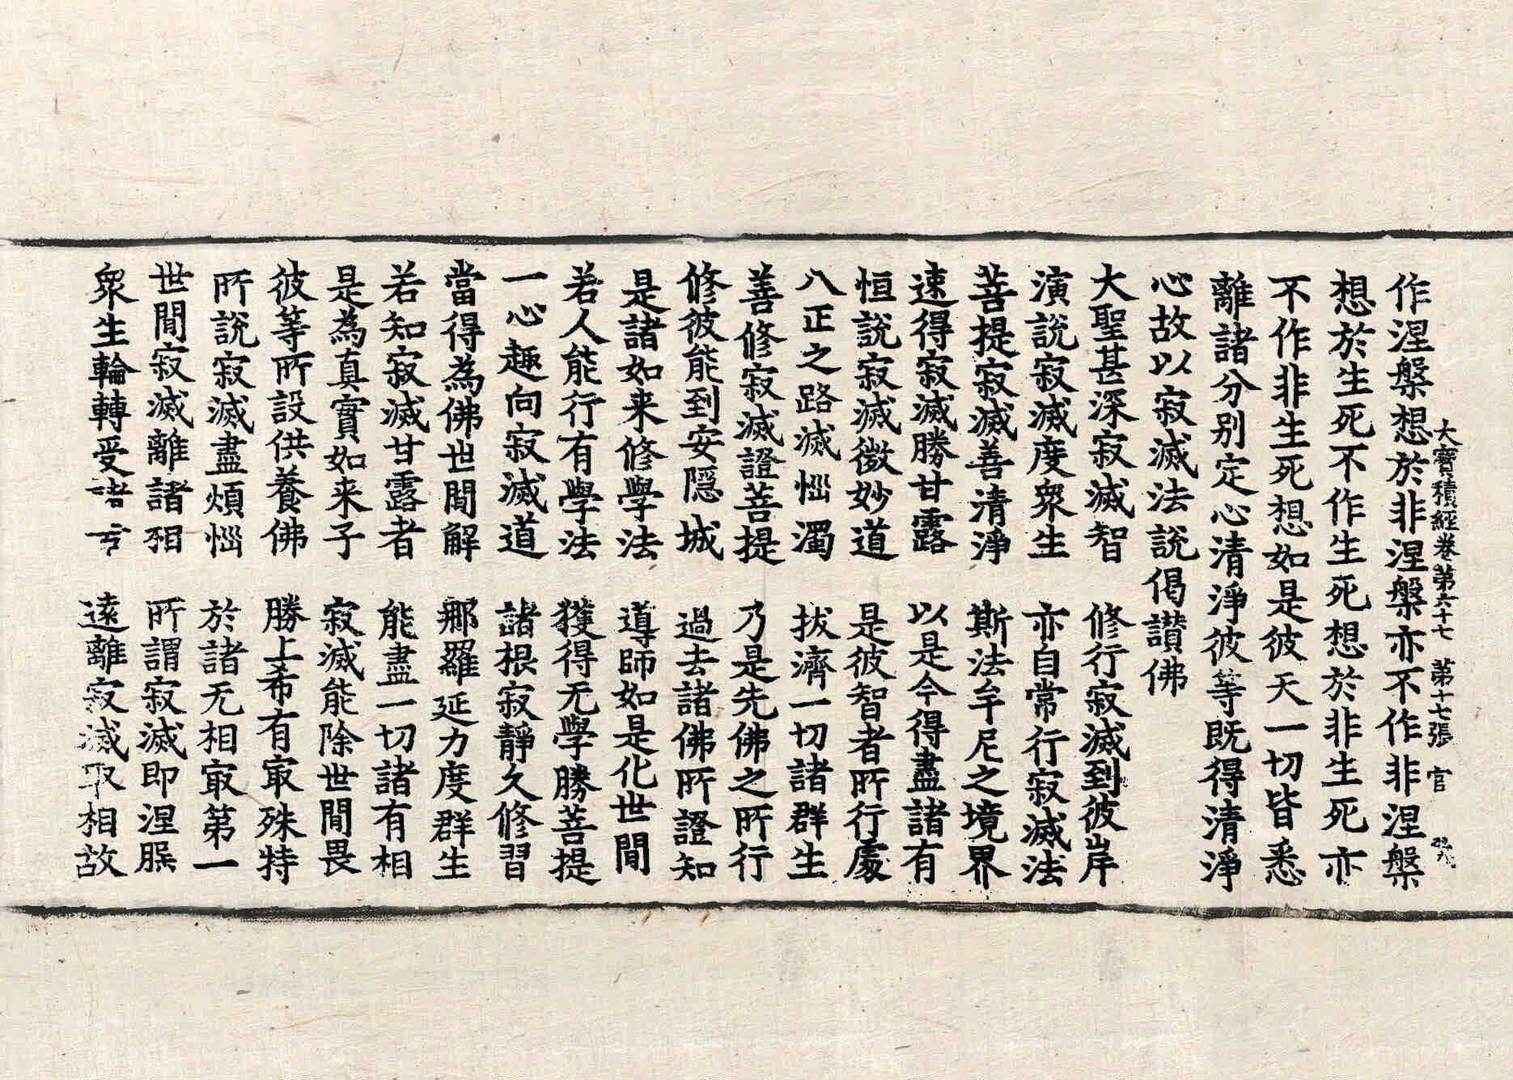 大寶積經卷第六十七 第十七張 官
作涅槃想於非涅槃亦不作非涅槃
想於生死不作生死想於非生死亦
不作非生死想如是彼天一切皆悉
離諸分別定心清淨彼等既得清淨
心故以寂滅法說偈讃佛
大聖甚深寂滅智 修行寂滅到彼岸
演說寂滅度衆生 亦自常行寂滅法
菩提寂滅善清淨 斯法牟尼之境界
速得寂滅勝甘露 以是今得盡諸有
恒說寂滅微妙道 是彼智者所行處
八正之路滅惱濁 拔濟一切諸群生
善修寂滅證菩提 乃是先佛之所行
修彼能到安隱城 過去諸佛所證知
是諸如来修學法 導師如是化世間
若人能行有學法 獲得无學勝菩提
一心趣向寂滅道 諸根寂靜久修習
當得為佛世間解 那羅延力度群生
若知寂滅甘露者 能盡一切諸有相
是為真實如来子 寂滅能除世間畏
彼等所設供養佛 勝上希有㝡殊特
所說寂滅盡煩惱 於諸无相㝡第一
世間寂滅離諸相 所謂寂滅即涅槃
衆生輪轉受諸 遠離寂滅取相故